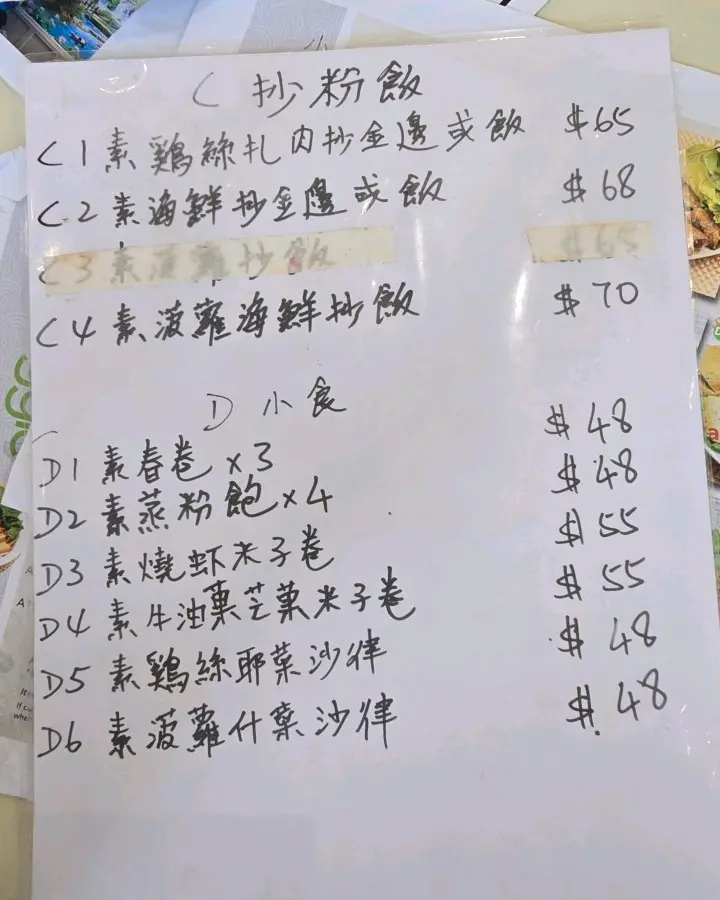 C 抄粉飯
C1 素鷄絲扎肉抄金邊或飯 $65
C2 素海鮮抄金邊或飯 $68
C3 素菠蘿抄飯 $65
C4 素菠蘿海鮮抄飯 $70
D 小食
D1 素春卷x3 $48
D2 素蒸粉飽x4 $48
D3 素燒虾米子卷 $55
D4 素牛油菓芒菓米子卷 $55
D5 素鷄絲耶菜沙律 $48
D6 素菠蘿什菜沙律 $48